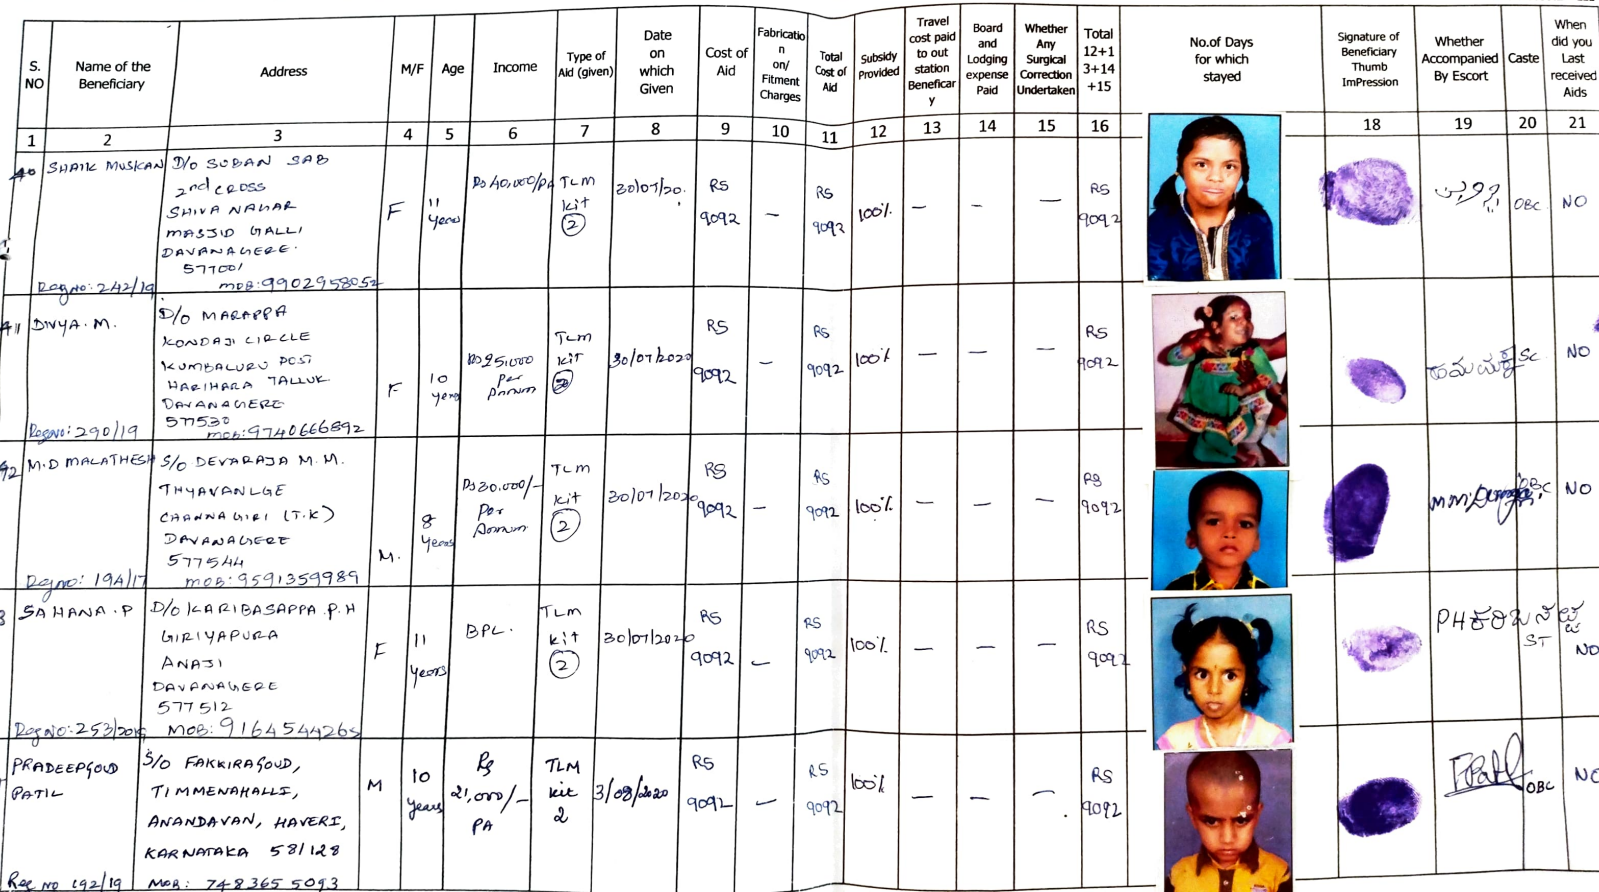 S. NO
Name of the Beneficiary
Address
M/F
Age
Income
Type of Aid (given)
Date on which Given
Cost of Aid
Fabricatio n on/ Fitment Charges
Total Cost of Aid
Subsidy Provided
Travel cost paid to out station Beneficar y
Board and Lodging expense Paid
Whether Any Surgical Correction Undertaken
Total 12+1 3+14 +15
No.of Days for which stayed
Signature of Beneficiary Thumb ImPression
Whether Accompanied By Escort
Caste
When did you Last received Aids
1 2 3 4 5 6 7 8 9 10 11 12 13 14 15 16 18 19 20 21
40 SHAIK MUSKAN D/o SUBAN SAB
2nd CROSS
SHIVA NAGAR
MASJID GALLI
DAVANAGERE.
577001
Reg no: 242/19 mob: 9902958052
F 11 years Rs 40,000/PA TLM kit 2 30/07/20. RS 9092 – RS 9092 100% – – – RS 9092 OBC NO
411 DIVYA. M. D/o MARAPPA
KONDAJI CIRCLE
KUMBALURU POST
HARIHARA TALLUK
DAVANAGERE
577530
Reg no: 290/19 mob: 9740666892
F 10 years Rs 25,000 Per Annum TLM kit 2 30/07/2020 RS 9092 – RS 9092 100% – – – RS 9092 SC NO
M.D MALATHESH S/o DEVARAJA M.M.
THYAVANIGE
CHANNAGIRI (T.K)
DAVANAGERE
577544
Reg no: 194/17 mob: 9591359989
M. 8 years Rs 30,000/- Per Annum TLM kit 2 30/07/2020 RS 9092 – RS 9092 100% – – – RS 9092 OBC NO
3 SAHANA . P D/o KARIBASAPPA .P.H
GIRIYAPURA
ANAJI
DAVANAGERE
577512
Reg no: 253/2019 MOB: 9164544265
F 11 years BPL. TLM kit 2 30/07/2020 RS 9092 – RS 9092 100% – – – RS 9092 ST NO
PRADEEPGOUD PATIL S/o FAKKIRAGOUD,
TIMMENAHALLI,
ANANDAVAN, HAVERI,
KARNATAKA 581128
Reg no 192/19 MOB: 7483655093
M 10 years Rs 21,000/- PA TLM kit 2 3/08/2020 RS 9092 – RS 9092 100% – – – RS 9092 OBC NO